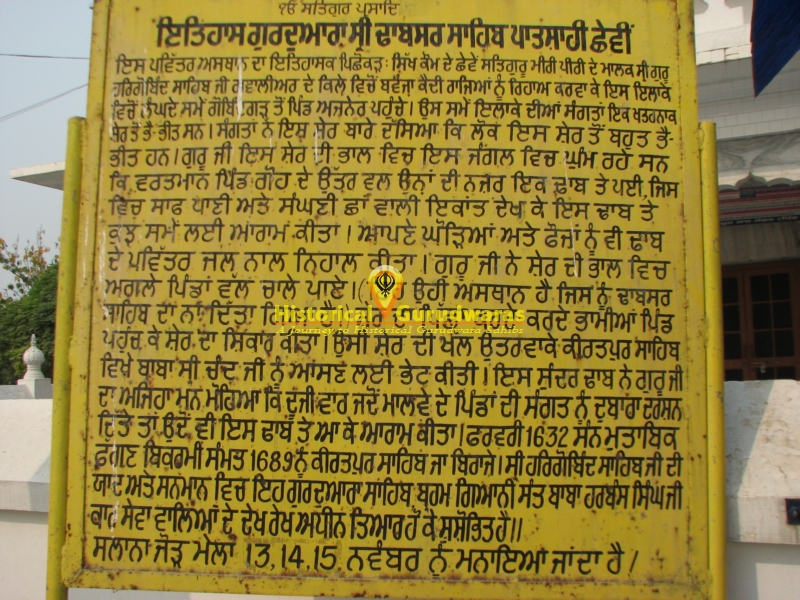 ੧ਓ ਸਤਿਗੁਰ ਪ੍ਰਸਾਦਿ
ਇਤਿਹਾਸ ਗੁਰਦੁਆਰਾ ਸ੍ਰੀ ਢਾਬਸਰ ਸਾਹਿਬ ਪਾਤਸਾਹੀ ਛੇਵੀਂ
ਇਸ ਪਵਿੱਤਰ ਅਸਥਾਨ ਦਾ ਇਤਿਹਾਸਕ ਪਿਛੋਕੜ: ਸਿੱਖ ਕੌਮ ਦੇ ਛੇਵੇਂ ਸਤਿਗੁਰੂ ਮੀਰੀ ਪੀਰੀ ਦੇ ਮਾਲਕ ਸ੍ਰੀ ਗੁਰੂ
ਹਰਿਗੋਬਿੰਦ ਸਾਹਿਬ ਜੀ ਗਵਾਲੀਅਰ ਦੇ ਕਿਲੇ ਵਿਚੋਂ ਬਵੰਜਾ ਕੈਦੀ ਰਾਜਿਆਂ ਨੂੰ ਰਿਹਾਅ ਕਰਵਾ ਕੇ ਇਸ ਇਲਾਕੇ
ਵਿਚੋਂ ਲੰਘਦੇ ਸਮੇਂ ਗੋਬਿੰਦਗੜ੍ਹ ਤੋਂ ਪਿੰਡ ਅਜਨੇਰ ਪਹੁੰਚੇ। ਉਸ ਸਮੇਂ ਇਲਾਕੇ ਦੀਆਂ ਸੰਗਤਾਂ ਇਕ ਖਤਰਨਾਕ
ਸ਼ੇਰ ਤੋਂ ਭੈ-ਭੀਤ ਸਨ। ਸੰਗਤਾਂ ਨੇ ਇਸ਼ ਸ਼ੇਰ ਬਾਰੇ ਦੱਸਿਆ ਕਿ ਲੋਕ ਇਸ ਸ਼ੇਰ ਤੋਂ ਬਹੁਤ ਭੈ-
ਭੀਤ ਹਨ। ਗੁਰੂ ਜੀ ਇਸ ਸ਼ੇਰ ਦੀ ਭਾਲ ਵਿਚ ਇਸ ਜੰਗਲ ਵਿਚ ਘੁੰਮ ਰਹੇ ਸਨ
ਕਿ ਵਰਤਮਾਨ ਪਿੰਡ ਗੌਹ ਦੇ ਉੱਤਰ ਵਲ ਉਨਾਂ ਦੀ ਨਜ਼ਰ ਇਕ ਢਾਬ ਤੇ ਪਈ, ਜਿਸ
ਵਿਚ ਸਾਫ ਪਾਣੀ ਅਤੇ ਸੰਘਣੀ ਛਾਂ ਵਾਲੀ ਇਕਾਂਤ ਦੇਖ ਕੇ ਇਸ ਢਾਬ ਤੇ
ਕੁਝ ਸਮੇਂ ਲਈ ਆਰਾਮ ਕੀਤਾ। ਆਪਣੇ ਘੋੜਿਆਂ ਅਤੇ ਫੌਜਾਂ ਨੂੰ ਵੀ ਢਾਬ
ਦੇ ਪਵਿੱਤਰ ਜਲ ਨਾਲ ਨਿਹਾਲ ਕੀਤਾ। ਗੁਰੂ ਜੀ ਨੇ ਸ਼ੇਰ ਦੀ ਭਾਲ ਵਿਚ
ਅਗਲੇ ਪਿੰਡਾਂ ਵੱਲ ਚਾਲੇ ਪਾਏ। ਉਹੀ ਅਸਥਾਨ ਹੈ ਜਿਸ ਨੂੰ ਢਾਬਸਰ
ਸਾਹਿਬ ਦਾ ਨਾਂ ਦਿੱਤਾ ਕਰਦੇ ਭਾਮੀਆਂ ਪਿੰਡ
Historical Gurudwaras
A Journey to Historical Gurudwara Sahibs
ਪਹੁੰਚ ਕੇ ਸ਼ੇਰ ਦਾ ਸ਼ਿਕਾਰ ਕੀਤਾ। ਉਸੀ ਸ਼ੇਰ ਦੀ ਖੱਲ ਉਤਰਵਾਕੇ ਕੀਰਤਪੁਰ ਸਾਹਿਬ
ਵਿਖੇ ਬਾਬਾ ਸ੍ਰੀ ਚੰਦ ਜੀ ਨੂੰ ਆਸਣ ਲਈ ਭੇਟ ਕੀਤੀ। ਇਸ ਸੁੰਦਰ ਢਾਬ ਨੇ ਗੁਰੂ ਜੀ
ਦਾ ਅਜਿਹਾ ਮਨ ਮੋਹਿਆ ਕਿ ਦੂਜੀ ਵਾਰ ਜਦੋਂ ਮਾਲਵੇ ਦੇ ਪਿੰਡਾਂ ਦੀ ਸੰਗਤ ਨੂੰ ਦੁਬਾਰਾ ਦਰਸ਼ਨ
ਦਿੱਤੇ ਤਾਂ ਉਦੋਂ ਵੀ ਇਸ ਢਾਬ ਤੇ ਆ ਕੇ ਆਰਾਮ ਕੀਤਾ। ਫਰਵਰੀ 1632 ਸੰਨ ਮੁਤਾਬਿਕ
ਫੱਗਣ ਬਿਕਰਮੀ ਸੰਮਤ 1689 ਨੂੰ ਕੀਰਤਪੁਰ ਸਾਹਿਬ ਜਾ ਬਿਰਾਜੇ। ਸ੍ਰੀ ਹਰਿਗੋਬਿੰਦ ਸਾਹਿਬ ਜੀ ਦੀ
ਯਾਦ ਅਤੇ ਸਨਮਾਨ ਵਿਚ ਇਹ ਗੁਰਦੁਆਰਾ ਸਾਹਿਬ ਬ੍ਰਹਮ ਗਿਆਨੀ ਸੰਤ ਬਾਬਾ ਹਰਬੰਸ ਸਿੰਘ ਜੀ
ਕਾਰ ਸੇਵਾ ਵਾਲਿਆਂ ਦੇ ਦੇਖ ਰੇਖ ਅਧੀਨ ਤਿਆਰ ਹੋ ਕੇ ਸੁਸ਼ੋਭਿਤ ਹੈ॥
ਸਲਾਨਾ ਜੋੜ ਮੇਲਾ 13,14,15 ਨਵੰਬਰ ਨੂੰ ਮਨਾਇਆ ਜਾਂਦਾ ਹੈ।